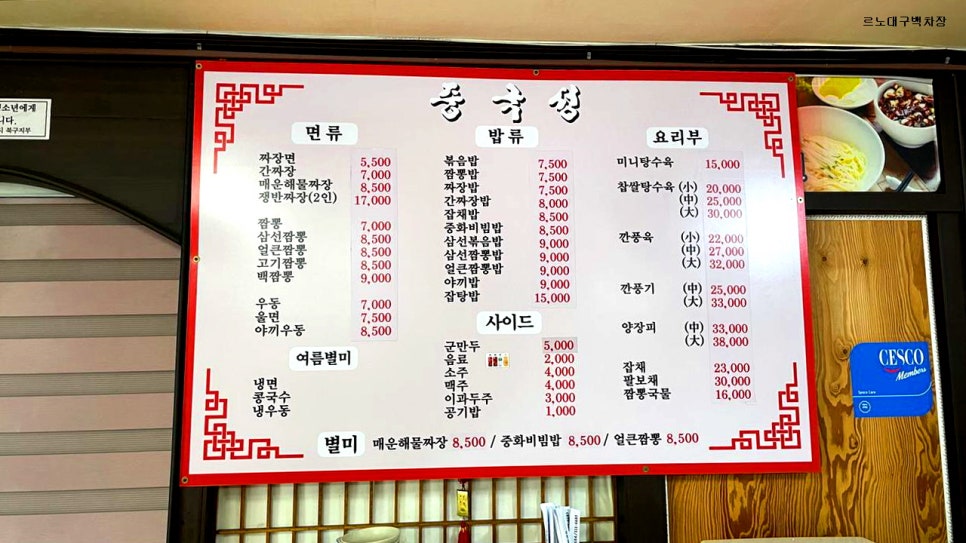 르노대구백차장
소년에게
니다.
북구지부
중국성
면류
짜장면 5,500
간짜장 7,000
매운해물짜장 8,500
쟁반짜장(2인) 17,000
짬뽕 7,000
삼선짬뽕 8,500
얼큰짬뽕 8,500
고기짬뽕 8,500
백짬뽕 9,000
우동 7,000
울면 7,500
야끼우동 8,500
여름별미
냉면
콩국수
냉우동
밥류
볶음밥 7,500
짬뽕밥 7,500
짜장밥 7,500
간짜장밥 8,000
잡채밥 8,500
중화비빔밥 8,500
삼선볶음밥 9,000
삼선짬뽕밥 9,000
얼큰짬뽕밥 9,000
야끼밥 9,000
잡탕밥 15,000
사이드
군만두 5,000
음료 2,000
소주 4,000
맥주 4,000
이과두주 3,000
공기밥 1,000
요리부
미니탕수육 15,000
찹쌀탕수육 (小) 20,000
(中) 25,000
(大) 30,000
깐풍육 (小) 22,000
(中) 27,000
(大) 32,000
깐풍기 (中) 25,000
(大) 33,000
양장피 (中) 33,000
(大) 38,000
잡채 23,000
팔보채 30,000
짬뽕국물 16,000
별미 매운해물짜장 8,500 / 중화비빔밥 8,500 / 얼큰짬뽕 8,500
CESCO
Members